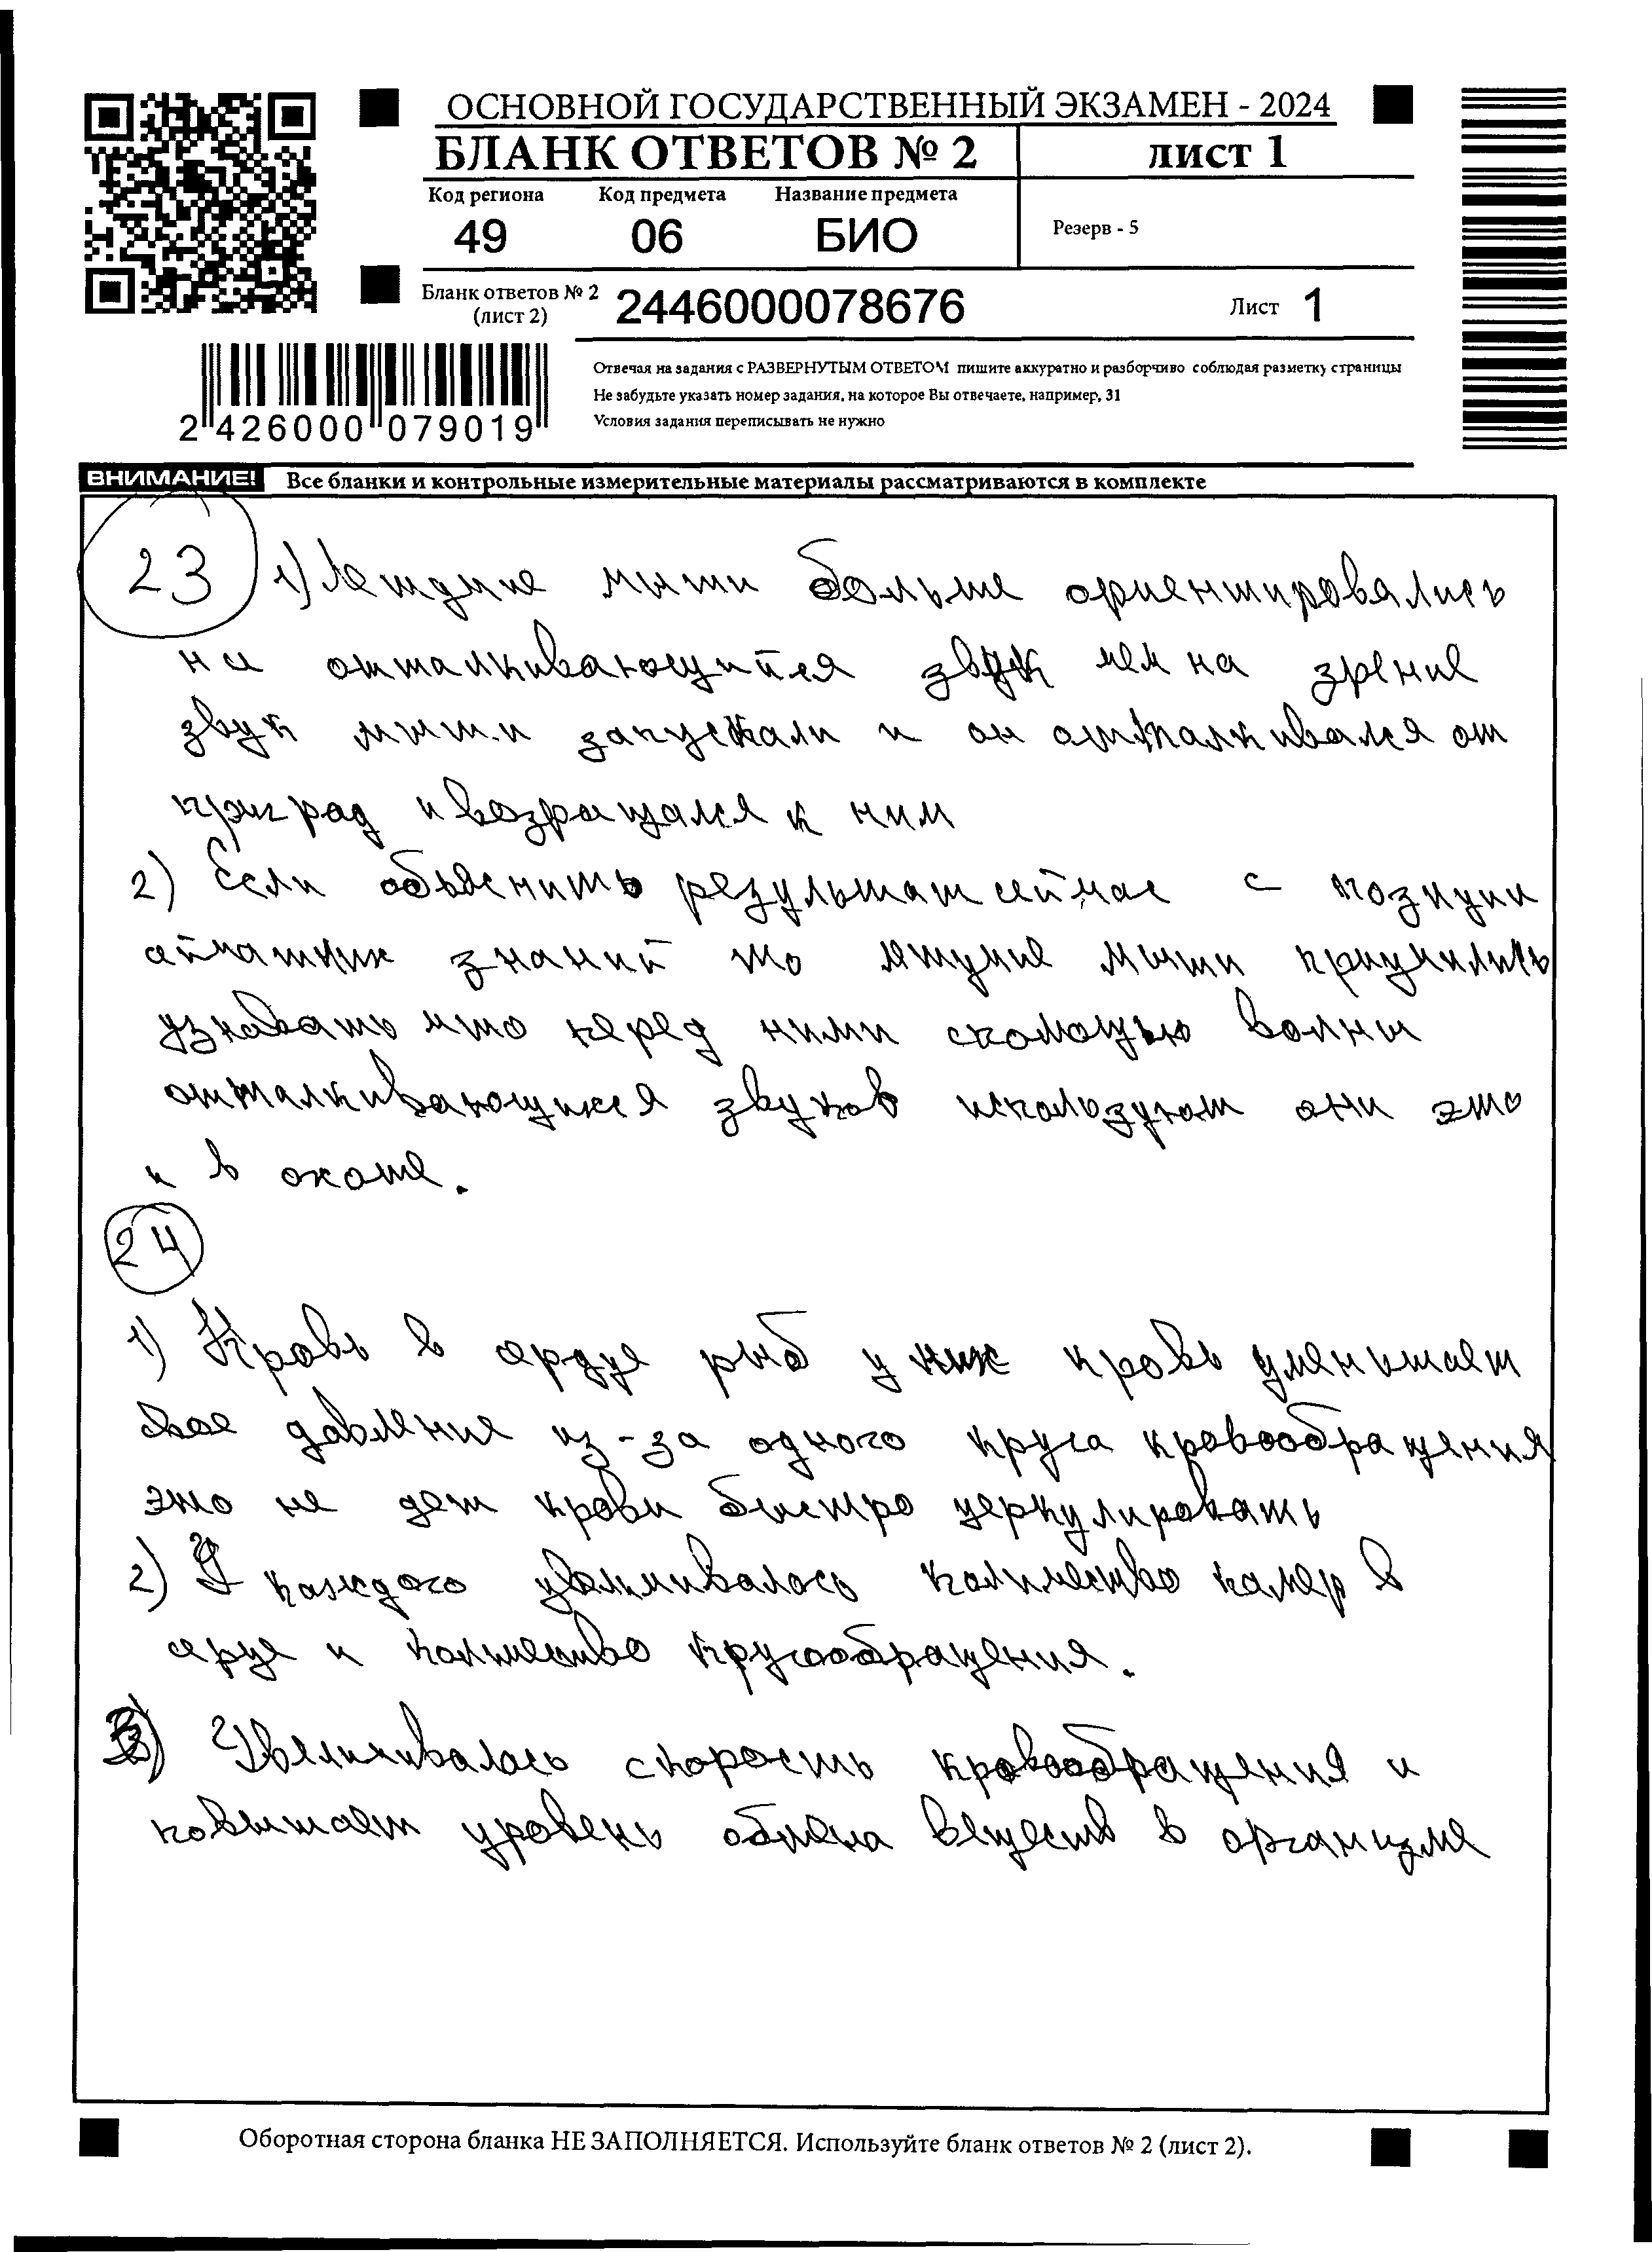 ОСНОВНОЙ ГОСУДАРСТВЕННЫЙ ЭКЗАМЕН - 2024
БЛАНК ОТВЕТОВ № 2
лист 1
Код региона Код предмета Название предмета
49 06 БИО
Резерв - 5
Бланк ответов № 2
(лист 2)
2446000078676
Лист 1
2 426000 079019
Отвечая на задания с РАЗВЕРНУТЫМ ОТВЕТОМ пишите аккуратно и разборчиво соблюдая разметку страницы
Не забудьте указать номер задания, на которое Вы отвечаете, например, 31
Условия задания переписывать не нужно
ВНИМАНИЕ! Все бланки и контрольные измерительные материалы рассматриваются в комплекте
23 1) Летущие мыши больше ориентировались
на отталкивающийся звук чем на зрение
звук мыши запускали и он отталкивался от
преград и возращался к ним
2) Если объеснить результат сейчас с позиции
знаний то мыши приучились
узнавать что перед ними спомощью волны
отталкивающихся звуков используют они это
и в охоте.
24
1) Кровь в сердце рыб у них кровь уменьшает
свое давление из-за одного круга кровообращения
это не дет крови быстро церкулировать
2) У каждого увеличивалось количество камер в
серце и количество кругообращения.
3) Увеличивалась скорость кровообращения и
повышает уровень обмена веществ в организме
Оборотная сторона бланка НЕ ЗАПОЛНЯЕТСЯ. Используйте бланк ответов № 2 (лист 2).